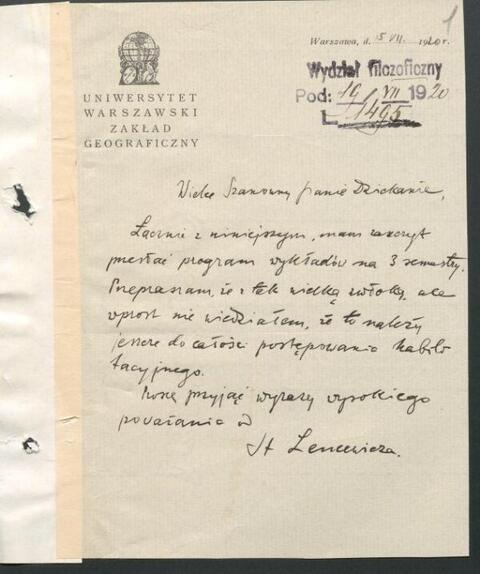 1
Warszawa, d. 15 VII. 1920 r.
Wydział filozoficzny
Pod: 19 VII 1920
L. 1495
UNIWERSYTET
WARSZAWSKI
ZAKŁAD
GEOGRAFICZNY
Wielce Szanowny Panie Dziekanie,
Łącznie z niniejszym, mam zaszczyt
przesłać program wykładów na 3 semestry.
Przepraszam, że z tak wielką zwłoką, ale
wprost nie wiedziałem, że to należy
jeszcze do całości postępowania habili
tacyjnego.
Proszę przyjąć wyrazy wysokiego
poważania od
St Lencewicza.